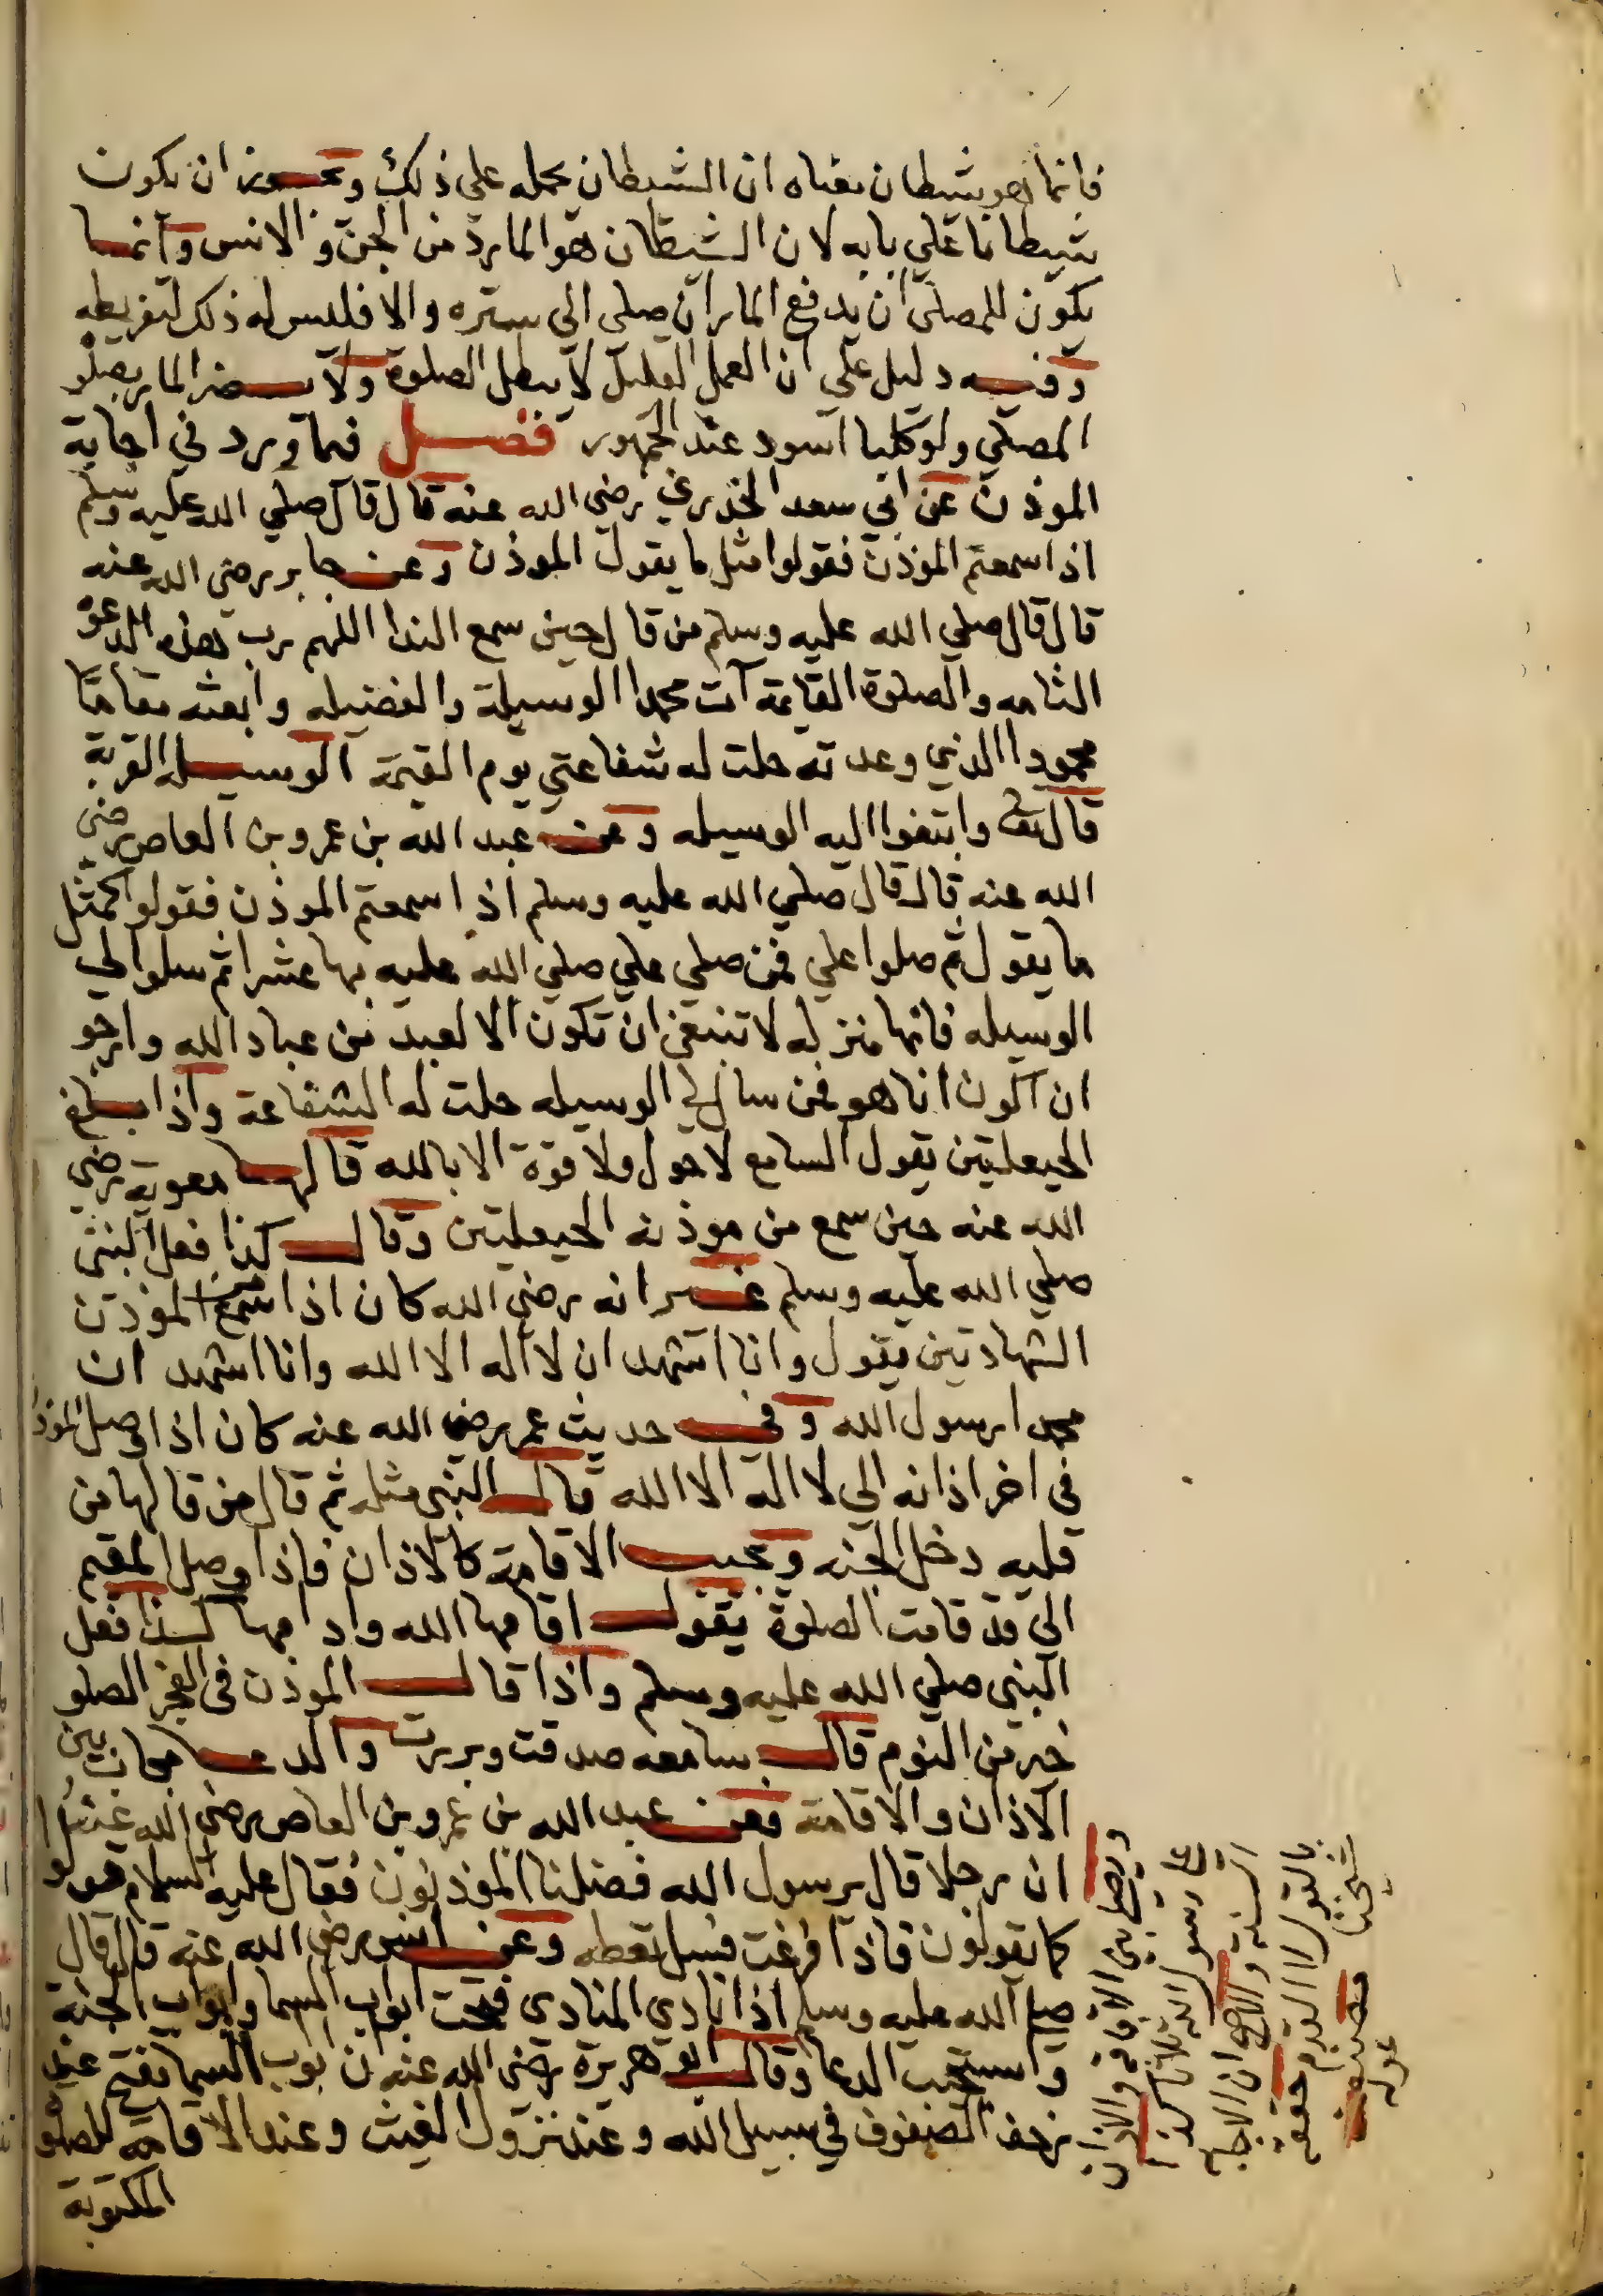 فانما هو شيطان معناه ان الشيطان يحمله علي ذلك ويجوز ان يكون
شيطانا علي بابه لان الشيطان هو المارد من الجن والانس وانما
يكون للمصلي ان يدفع المار ان صلي الي ستره والا فليس له ذلك لتفريطه
وفيه دليل علي ان العمل القليل لا يبطل الصلوة ولا يضر المار بصلو
المصلي ولو كلبا اسود عند الجمهور فصل فيما ورد في اجابة
الموذن عن ابي سعد الخدري رضي الله عنه قال قال صلي الله عليه وسلم
اذا سمعتم الموذن فقولوا مثل ما يقول الموذن وعن جابر رضي الله عنه
قال قال صلي الله عليه وسلم من قال حين سمع الندا اللهم رب هذه الدعوة
التامه والصلوة القايمة آت محمدا الوسيلة والفضيله وابعثه مقاما
محمودا الذي وعدته حلت له شفاعتي يوم القيمة الوسيله القربة
قال تعالى وابتغوا اليه الوسيله وعن عبد الله بن عمرو بن العاص رضي
الله عنه قال قال صلي الله عليه وسلم اذا سمعتم الموذن فقولوا كمثل
ما يقول ثم صلوا علي فمن صلي علي صلي الله عليه بها عشرا ثم سلوا لي
الوسيله فانها منزله لا تنبغي ان تكون الا لعبد من عباد الله وارجو
ان اكون انا هو فمن سال لي الوسيله حلت له الشفاعة واذا بلغ
الحيعلتين يقول السامع لا حول ولا قوة الا بالله قالها معوية رضي
الله عنه حين سمع من موذنه الحيعلتين وقال كذا فعل النبي
صلي الله عليه وسلم غير انه رضي الله كان اذا سمع الموذن
الشهادتين يقول وانا اشهد ان لا اله الا الله وانا اشهد ان
محمدا رسول الله وفي حديث عمر رضي الله عنه كان اذا وصل الموذن
في اخر اذانه الي لا اله الا الله قال النبي مثله ثم قال من قالها من
قلبه دخل الجنه ويجيب الاقامة كالاذان فاذا وصل المقيم
الي قد قامت الصلوة يقول اقامها الله وادامها كذا فعل
النبي صلي الله عليه وسلم واذا قال الموذن في الفجر الصلو
خير من النوم قال سامعه صدقت وبررت والدعا مجاب بين
الاذان والاقامة فعن عبد الله بن عمرو بن العاص رضي الله عنهما
ان رجلا قال يرسول الله فضلنا الموذنون فقال عليه السلام قولو
كما يقولون فاذا فرغت فسل تعطه وعن انس رضي الله عنه قال قال
صلي الله عليه وسلم اذا نادي المنادي فتحت ابواب السما وابواب الجنة
واستجيب الدعا وقال ابو هريرة رضي الله عنه ان ابواب السما تفتح عند
زحف الصفوف في سبيل الله وعند نزول الغيث وعند الاقامة للصلوة
المكتوبة
ويصل بين الاقامة والاذان
علي رسول الله ثلاثا كذا
السنه والاصح ان الاجابه
بالقول لا القدم حققه
شيخنا مصنف
عوله